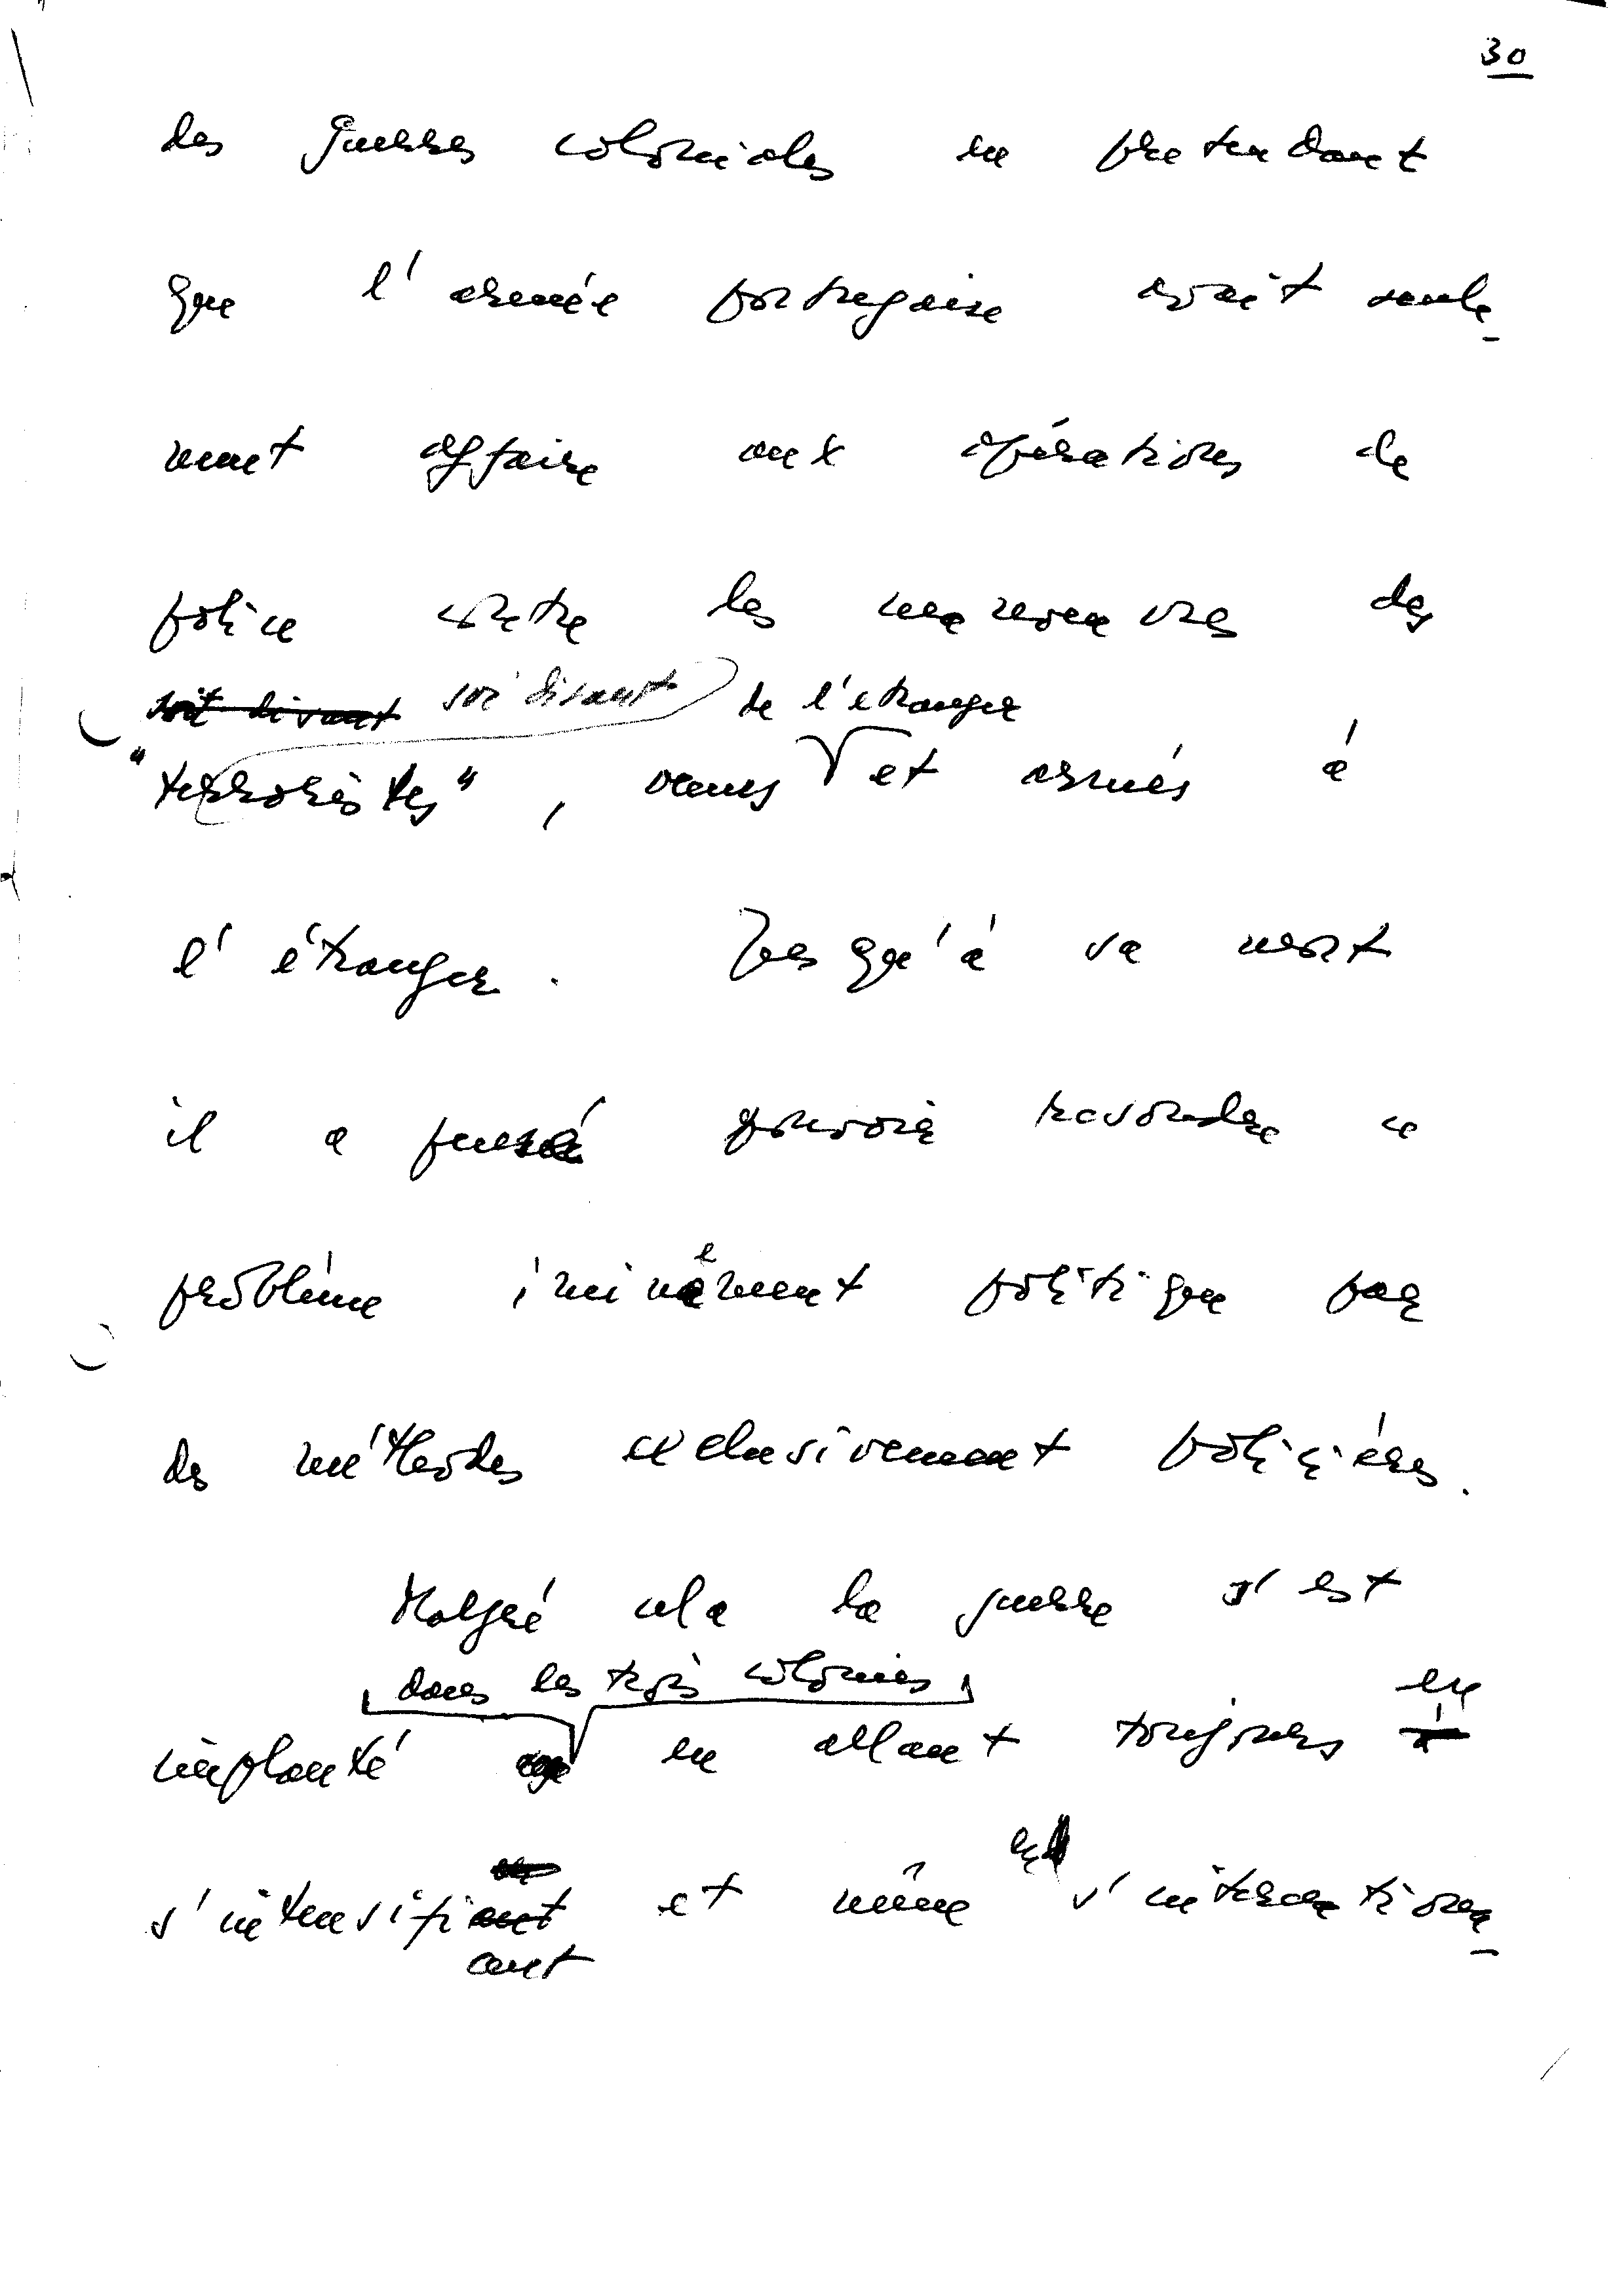 30
des guerres coloniales en pretendant
que l'armée portugaise avait seule-
ment affaire aux opérations de
police contre les manoeuvres des
soit disant soi disant de l'etranger
"terroristes", venus et armés à
l'étranger. Jusqu'à sa mort
il a pensé pouvoir resoudre ce
problème éminemment politique par
des méthodes exclusivement policières.
Malgré cela la guerre s'est
dans les trois colonies en
implanté en allant toujours à
en
s'intensifiant et même s'internationa-
ant